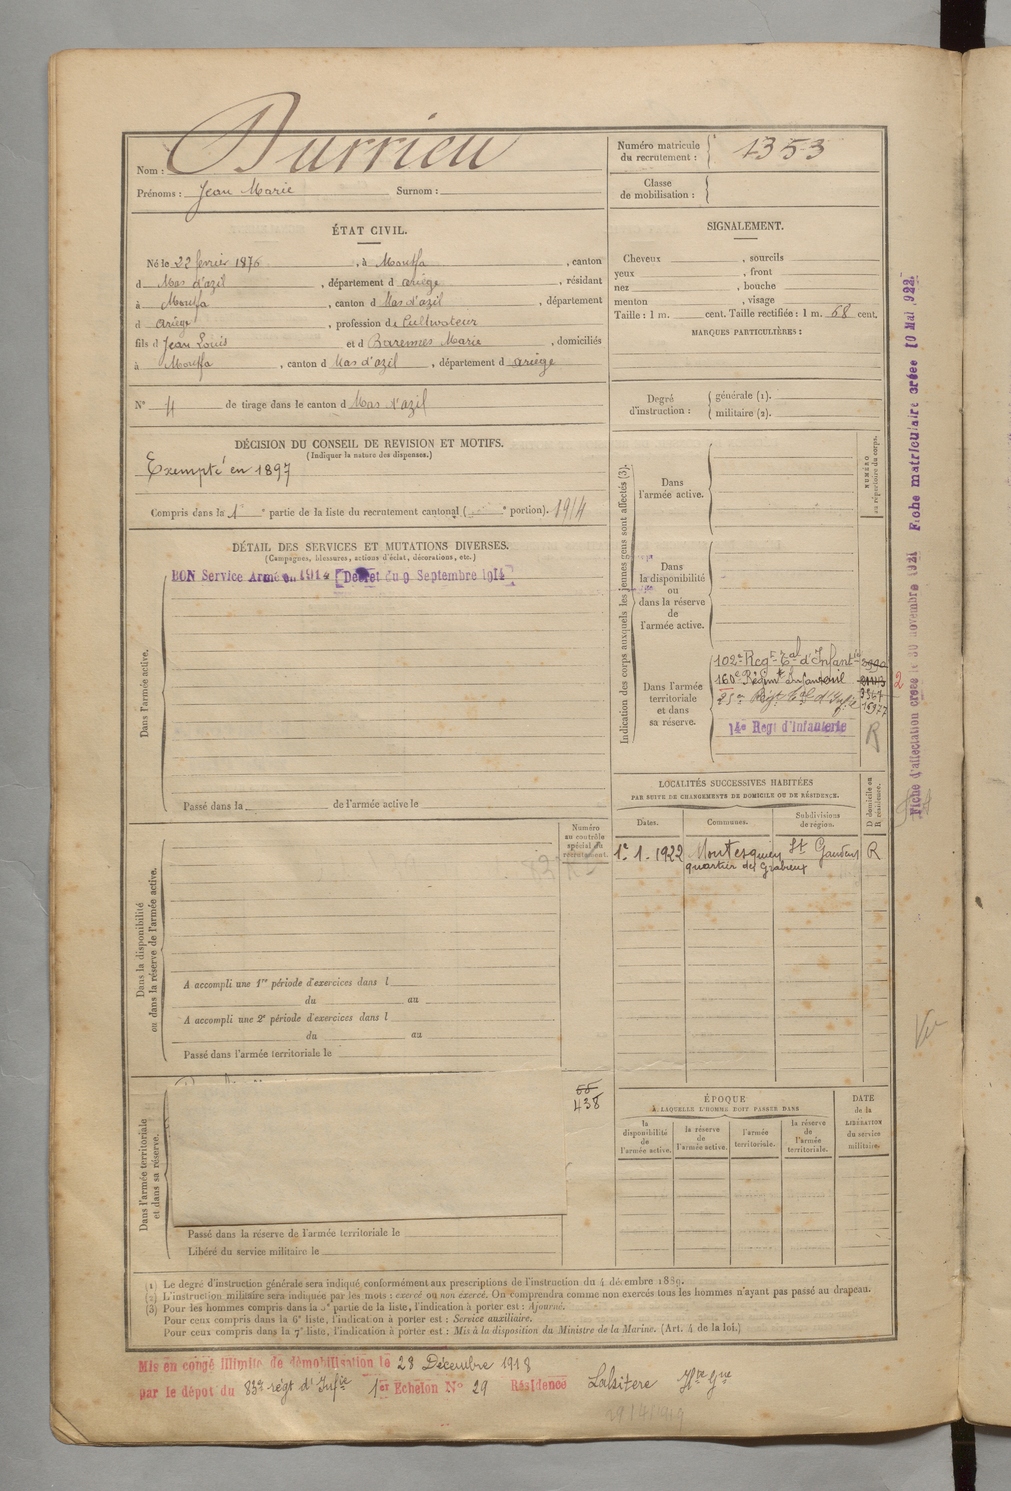 Nom : Durrieu
Prénoms : Jean Marie Surnom :
Numéro matricule du recrutement : 1353
Classe de mobilisation :
ÉTAT CIVIL.
Né le 22 fevrier 1876, à Mouffa, canton
d Mas d'azil, département d ariège, résidant
à Mouffa, canton d Mas d'azil, département
d ariège, profession de Cultivateur
fils d Jean Louis et d Barennes Marie, domiciliés
à Mouffa, canton d Mas d'azil, département d ariège
N° 4 de tirage dans le canton d Mas d'azil
DÉCISION DU CONSEIL DE REVISION ET MOTIFS.
(Indiquer la nature des dispenses.)
Exempté en 1897
Compris dans la 1e partie de la liste du recrutement cantonal ( e portion). 1914
DÉTAIL DES SERVICES ET MUTATIONS DIVERSES.
(Campagnes, blessures, actions d'éclat, décorations, etc.)
BON Service Armé en 1914 [Décret du 9 Septembre 1914]
Dans l'armée active.
Passé dans la de l'armée active le
Numéro au contrôle spécial du recrutement.
Dans la disponibilité
ou dans la réserve de l'armée active.
A accompli une 1re période d'exercices dans l
du au
A accompli une 2e période d'exercices dans l
du au
Passé dans l'armée territoriale le
Dans l'armée territoriale
et dans sa réserve.
438
Passé dans la réserve de l'armée territoriale le
Libéré du service militaire le
SIGNALEMENT.
Cheveux , sourcils
yeux , front
nez , bouche
menton , visage
Taille : 1 m. cent. Taille rectifiée : 1 m. 68 cent.
MARQUES PARTICULIÈRES :
Degré d'instruction :
générale (1).
militaire (2).
Indication des corps auxquels les jeunes gens sont affectés (3).
NUMÉRO
au répertoire du corps.
Dans
l'armée active.
Dans
la disponibilité
ou
dans la réserve
de
l'armée active.
Dans l'armée
territoriale
et dans
sa réserve.
102e Regt Tal d'Infantie
160e Régimt Infanterie
25e Regt Tal d'Infie
14e Regt d'Infanterie
R
2
LOCALITÉS SUCCESSIVES HABITÉES
PAR SUITE DE CHANGEMENTS DE DOMICILE OU DE RÉSIDENCE.
D domicile ou
R résidence.
Dates. Communes. Subdivisions de région.
1r. 1. 1922 Montesquieu St Gaudens R
quartier des
ÉPOQUE
À LAQUELLE L'HOMME DOIT PASSER DANS
la disponibilité de l'armée active.
la réserve de l'armée active.
l'armée territoriale.
la réserve de l'armée territoriale.
DATE de la LIBÉRATION du service militaire.
Fiche d'affectation créée le 30 novembre 1921 Fiche matriculaire créée 10 Mai 1922
(1) Le degré d'instruction générale sera indiqué conformément aux prescriptions de l'instruction du 4 décembre 1889.
(2) L'instruction militaire sera indiquée par les mots : exercé ou non exercé. On comprendra comme non exercés tous les hommes n'ayant pas passé au drapeau.
(3) Pour les hommes compris dans la 5e partie de la liste, l'indication à porter est : Ajourné.
Pour ceux compris dans la 6e liste, l'indication à porter est : Service auxiliaire.
Pour ceux compris dans la 7e liste, l'indication à porter est : Mis à la disposition du Ministre de la Marine. (Art. 4 de la loi.)
Mis en congé illimité de démobilisation le 23 Décembre 1918
par le dépôt du 83e régt d'Infie 1er Echelon N° 29 Résidence Labitere Hte Gne
29/4/1919